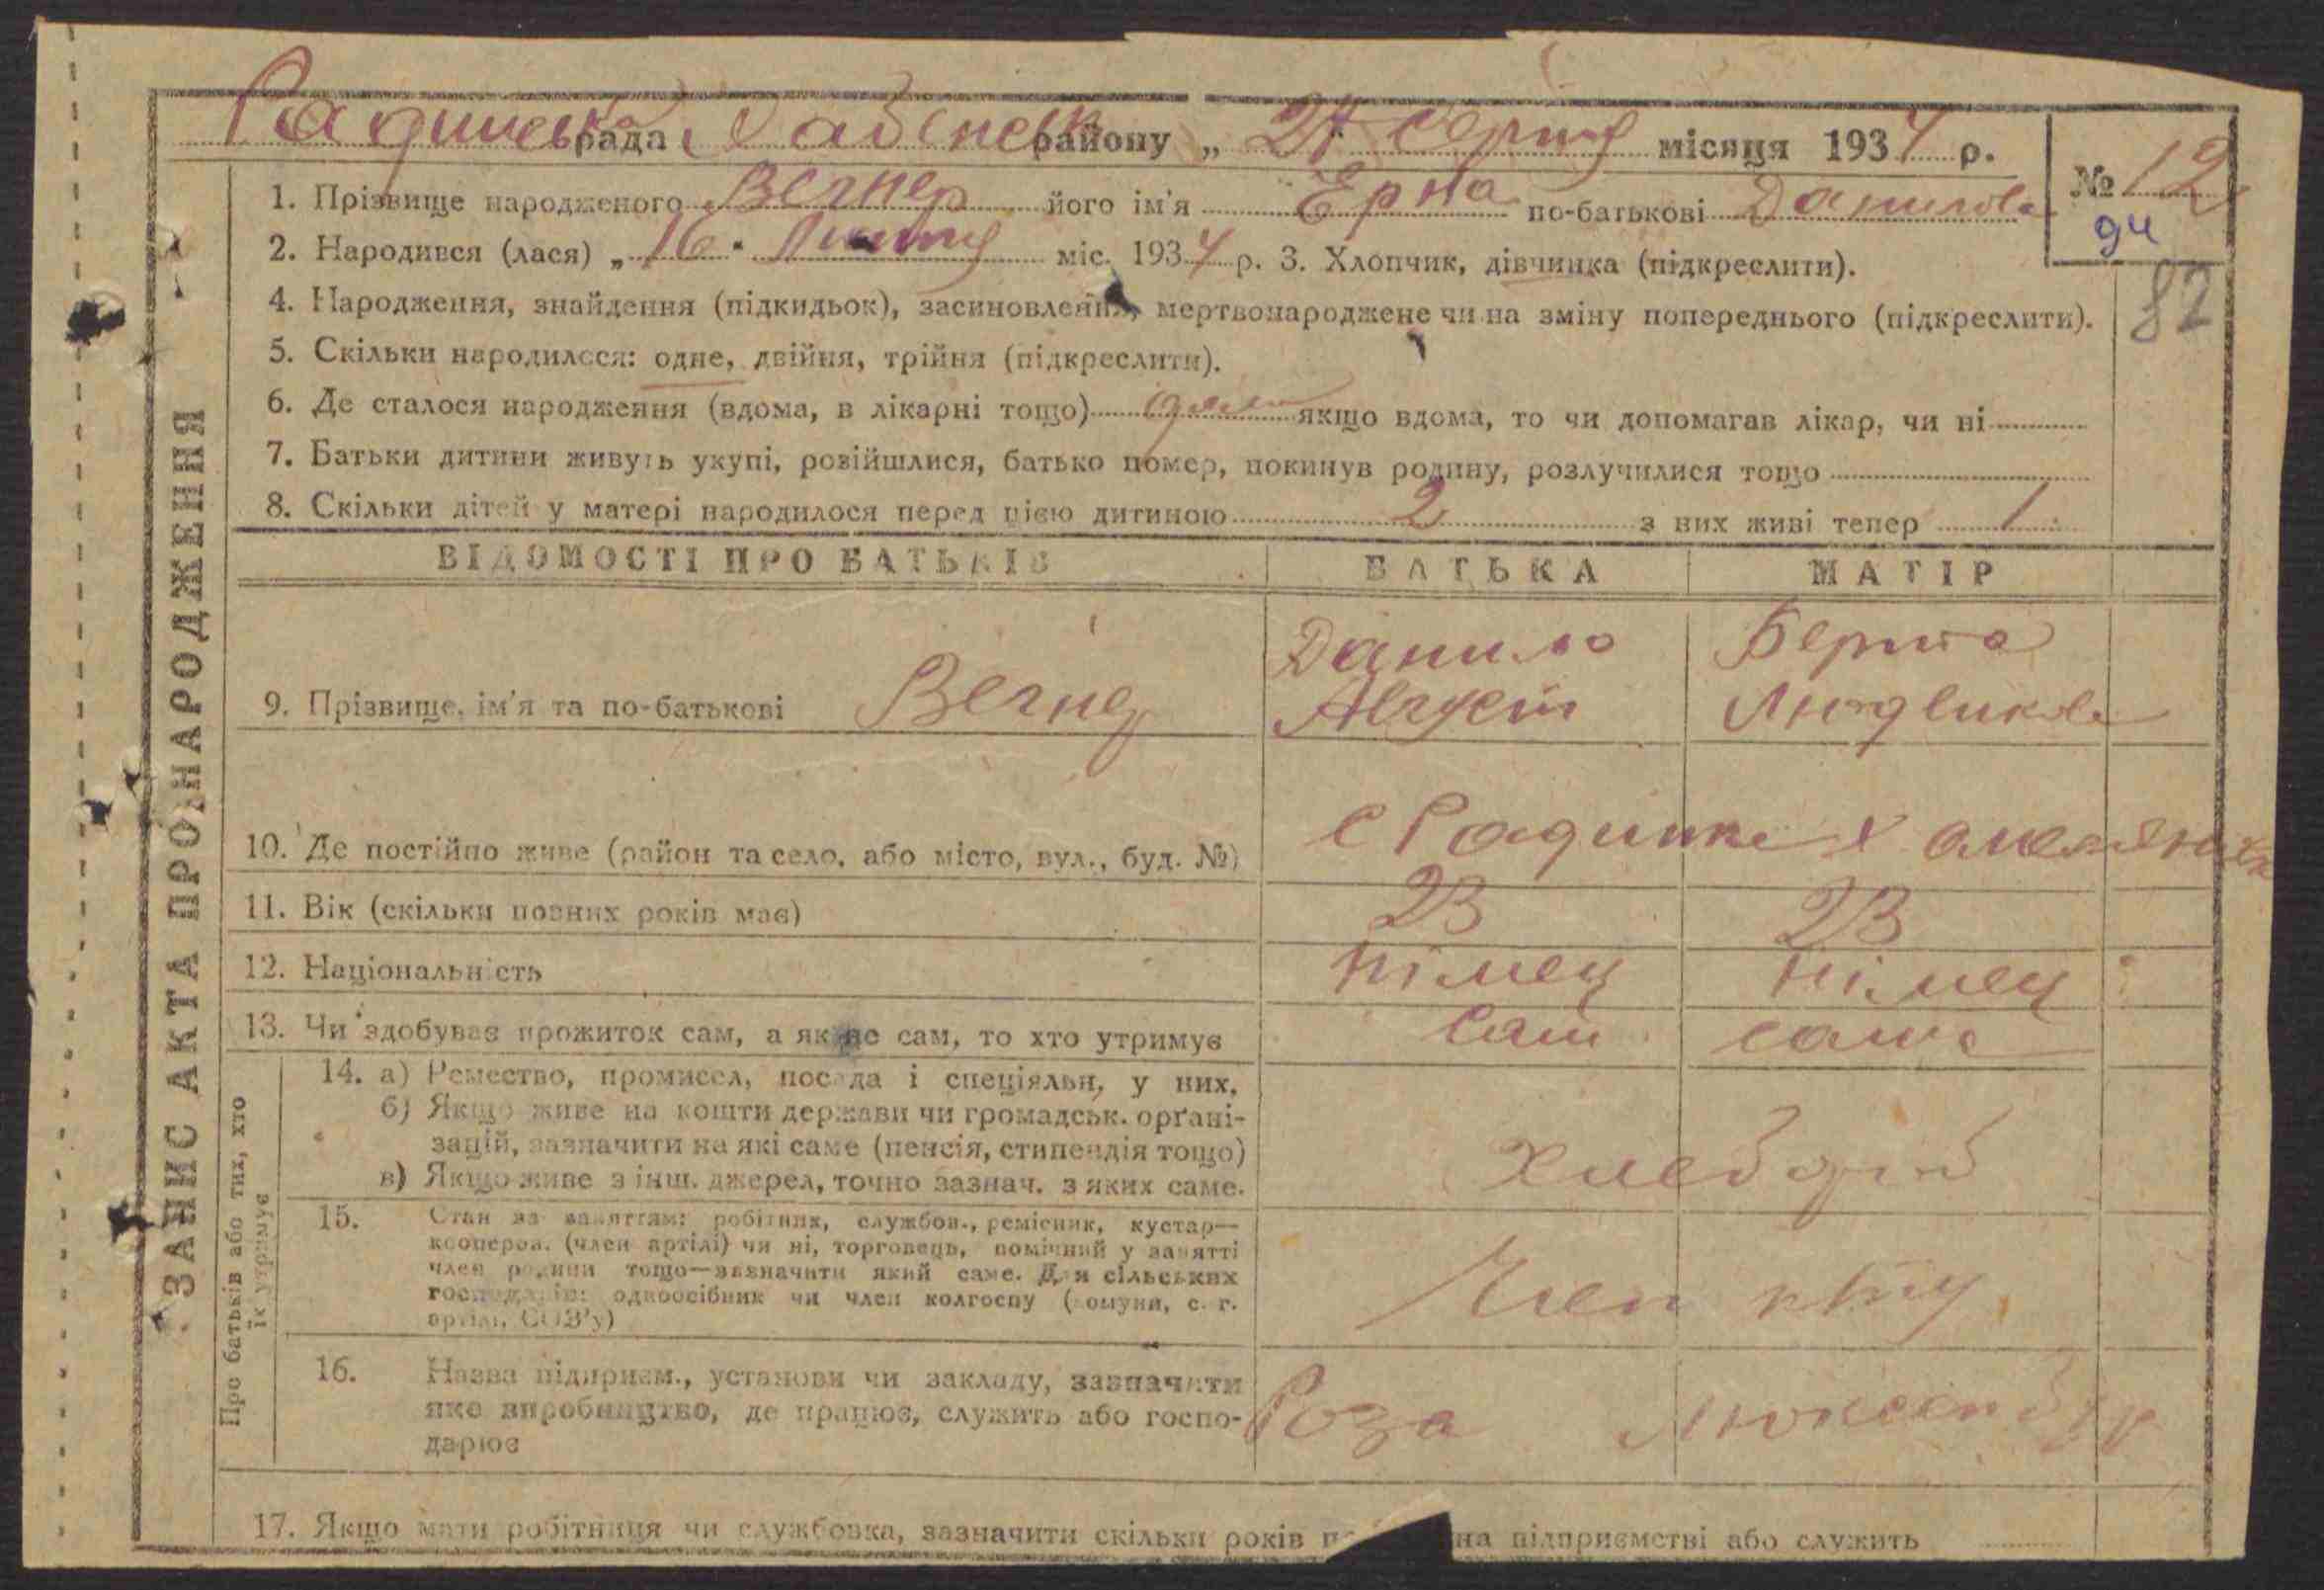 рада району „ 27 Серпня місяця 1934 р.
№ 12
1. Прізвище народженого Вегнер його ім'я Ерна по-батькові Данилова
94
2. Народився (лася) „16" Лютня міс. 1934 р. 3. Хлопчик, дівчинка (підкреслити).
82
4. Народження, знайдення (підкидьок), засиновлення, мертвонароджене чи на зміну попереднього (підкреслити).
5. Скільки народилося: одне, двійня, трійня (підкреслити).
6. Де сталося народження (вдома, в лікарні тощо) якщо вдома, то чи допомагав лікар, чи ні
7. Батьки дитини живуть укупі, розійшлися, батько помер, покинув родину, розлучилися тощо
8. Скільки дітей у матері народилося перед цією дитиною 2 з них живі тепер 1
ВІДОМОСТІ ПРО БАТЬКІВ БАТЬКА МАТІР
Данило Берта
9. Прізвище, ім'я та по-батькові Вегнер Август Людвикова
10. Де постійно живе (район та село, або місто, вул., буд. №) с Радинка
11. Вік (скільки повних років має) 23 23
12. Національність німец німец
13. Чи здобував прожиток сам, а як не сам, то хто утримує сам сама
Про батьків або тих, хто їх утримує
14. а) Ремество, промисел, посада і спеціяльн, у них.
б) Якщо живе на кошти держави чи громадськ. орґані-
зацій, зазначити на які саме (пенсія, стипендія тощо)
в) Якщо живе з інш. джерел, точно зазнач. з яких саме.
хлебороб
15. Стан за заняттям: робітник, службов., ремісник, кустар—
коопероа. (член артілі) чи ні, торговець, помічний у занятті
член родини тощо—зазначити який саме. Для сільських
господарів: одноосібник чи член колгоспу (комуни, с. г.
артілі, СОЗ'у)
Член
16. Назва підприєм., установи чи закладу, зазначити
яке виробництво, де працює, служить або госпо-
дарює
Роза Люксенбур
17. Якщо мати робітниця чи службовка, зазначити скільки років на підприємстві або служить
ЗАПИС АКТА ПРО НАРОДЖЕННЯ